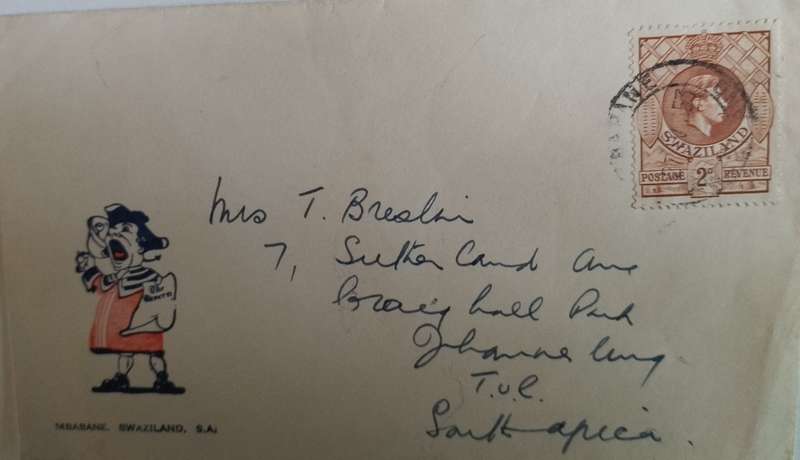 SWAZILAND
POSTAGE 2D REVENUE
Mrs T. Breslin
7, Sutherland Ave
Craighall Park
Johannesburg.
T.v.l.
South Africa.
The
MBABANE. SWAZILAND, S.A.